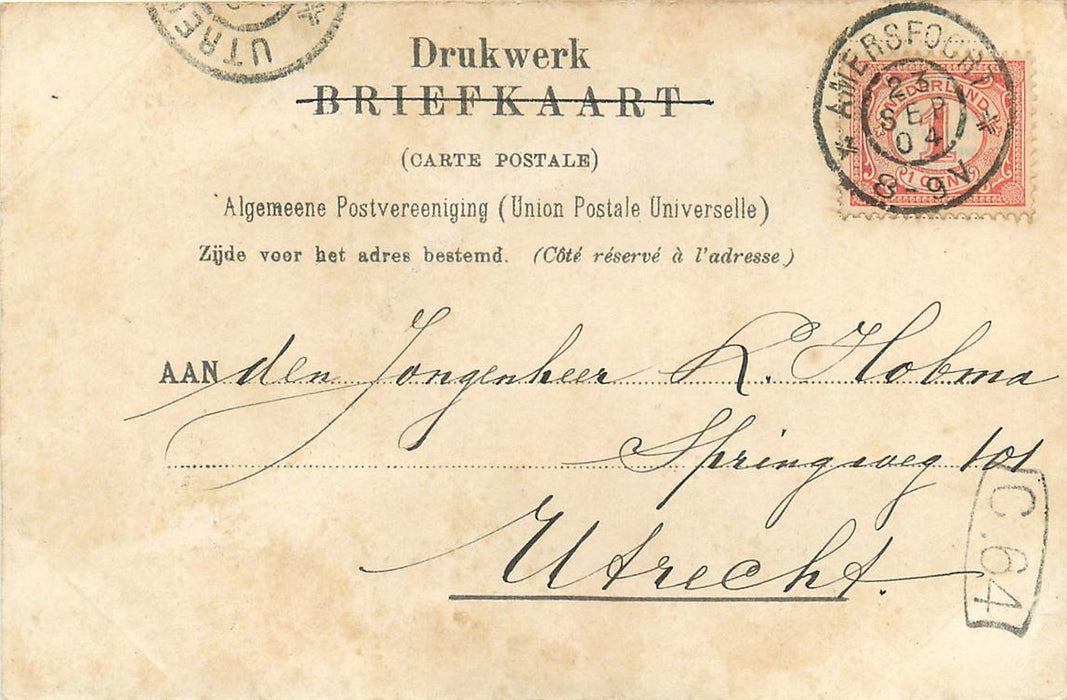 UTREC
Drukwerk
BRIEFKAART
(CARTE POSTALE)
Algemeene Postvereeniging (Union Postale Universelle)
Zijde voor het adres bestemd. (Côté réservé à l'adresse)
AMERSFOORT
23
SEP
04
8-9V
NEDERLAND
1
1 CENT
AAN den Jongenheer K. Hobma
Springweg 101
Utrecht.
C.64